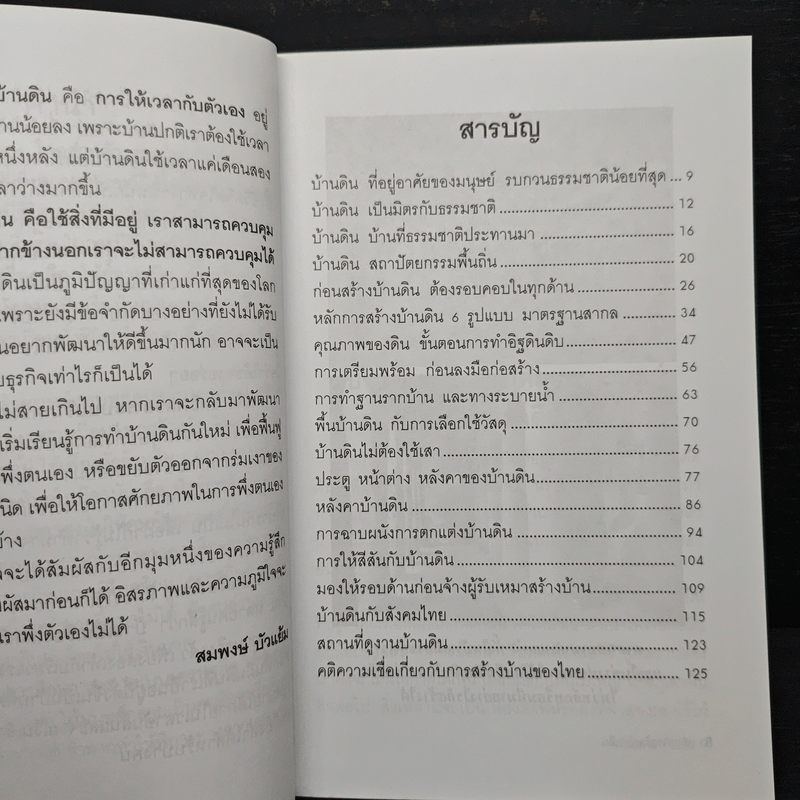 บ้านดิน คือ การให้เวลากับตัวเอง อยู่
านน้อยลง เพราะบ้านปกติเราต้องใช้เวลา
หนึ่งหลัง แต่บ้านดินใช้เวลาแค่เดือนสอง
ลาว่างมากขึ้น
น คือใช้สิ่งที่มีอยู่ เราสามารถควบคุม
ากข้างนอกเราจะไม่สามารถควบคุมได้
ดินเป็นภูมิปัญญาที่เก่าแก่ที่สุดของโลก
เพราะยังมีข้อจำกัดบางอย่างที่ยังไม่ได้รับ
นอยากพัฒนาให้ดีขึ้นมากนัก อาจจะเป็น
บธุรกิจเท่าไรก็เป็นได้
ไม่สายเกินไป หากเราจะกลับมาพัฒนา
เริ่มเรียนรู้การทำบ้านดินกันใหม่ เพื่อฟื้นฟู
พึ่งตนเอง หรือขยับตัวออกจากร่มเงาของ
นิด เพื่อให้โอกาสศักยภาพในการพึ่งตนเอง
บ้าง
จะได้สัมผัสกับอีกมุมหนึ่งของความรู้สึก
ผัสมาก่อนก็ได้ อิสรภาพและความภูมิใจจะ
เราพึ่งตัวเองไม่ได้
สมพงษ์ บัวแย้ม
สารบัญ
บ้านดิน ที่อยู่อาศัยของมนุษย์ รบกวนธรรมชาติน้อยที่สุด ... 9
บ้านดิน เป็นมิตรกับธรรมชาติ ... 12
บ้านดิน บ้านที่ธรรมชาติประทานมา ... 16
บ้านดิน สถาปัตยกรรมพื้นถิ่น ... 20
ก่อนสร้างบ้านดิน ต้องรอบคอบในทุกด้าน ... 26
หลักการสร้างบ้านดิน 6 รูปแบบ มาตรฐานสากล ... 34
คุณภาพของดิน ขั้นตอนการทำอิฐดินดิบ ... 47
การเตรียมพร้อม ก่อนลงมือก่อสร้าง ... 56
การทำฐานรากบ้าน และทางระบายน้ำ ... 63
พื้นบ้านดิน กับการเลือกใช้วัสดุ ... 70
บ้านดินไม่ต้องใช้เสา ... 76
ประตู หน้าต่าง หลังคาของบ้านดิน ... 77
หลังคาบ้านดิน ... 86
การฉาบผนังการตกแต่งบ้านดิน ... 94
การให้สีสันกับบ้านดิน ... 104
มองให้รอบด้านก่อนจ้างผู้รับเหมาสร้างบ้าน ... 109
บ้านดินกับสังคมไทย ... 115
สถานที่ดูงานบ้านดิน ... 123
คติความเชื่อเกี่ยวกับการสร้างบ้านของไทย ... 125